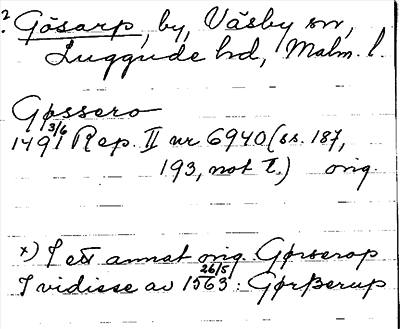 ? Gåsarp, by, Väsby sn,
Luggude hd, Malm. l.
Gøssero
3/6
1491 Rep. II nr 6940 (ss. 187,
193, not 2.) orig
x) I ett annat orig. Gørserop
26/5
I vidisse av 1563: Gørßerup